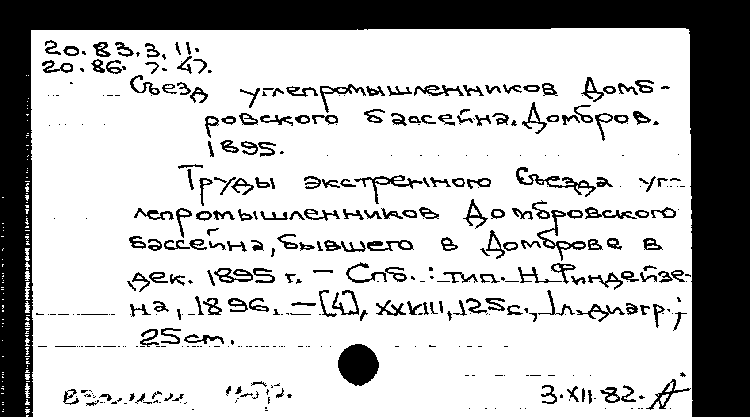 20.83.3.11.
20.86.7.47.
Съезд углепромышленников Домб-
ровского бассейна. Домбров.
1895.
Труды экстренного Съезда уг-
лепромышленников Домбровского
бассейна, бывшего в Домброве в
дек. 1895 г. – Спб.: тип. Н. Финдейзе-
на, 1896. – [4], XXVIII, 125с., 1л. диагр.;
25cm.
взамен
3.XII.82.